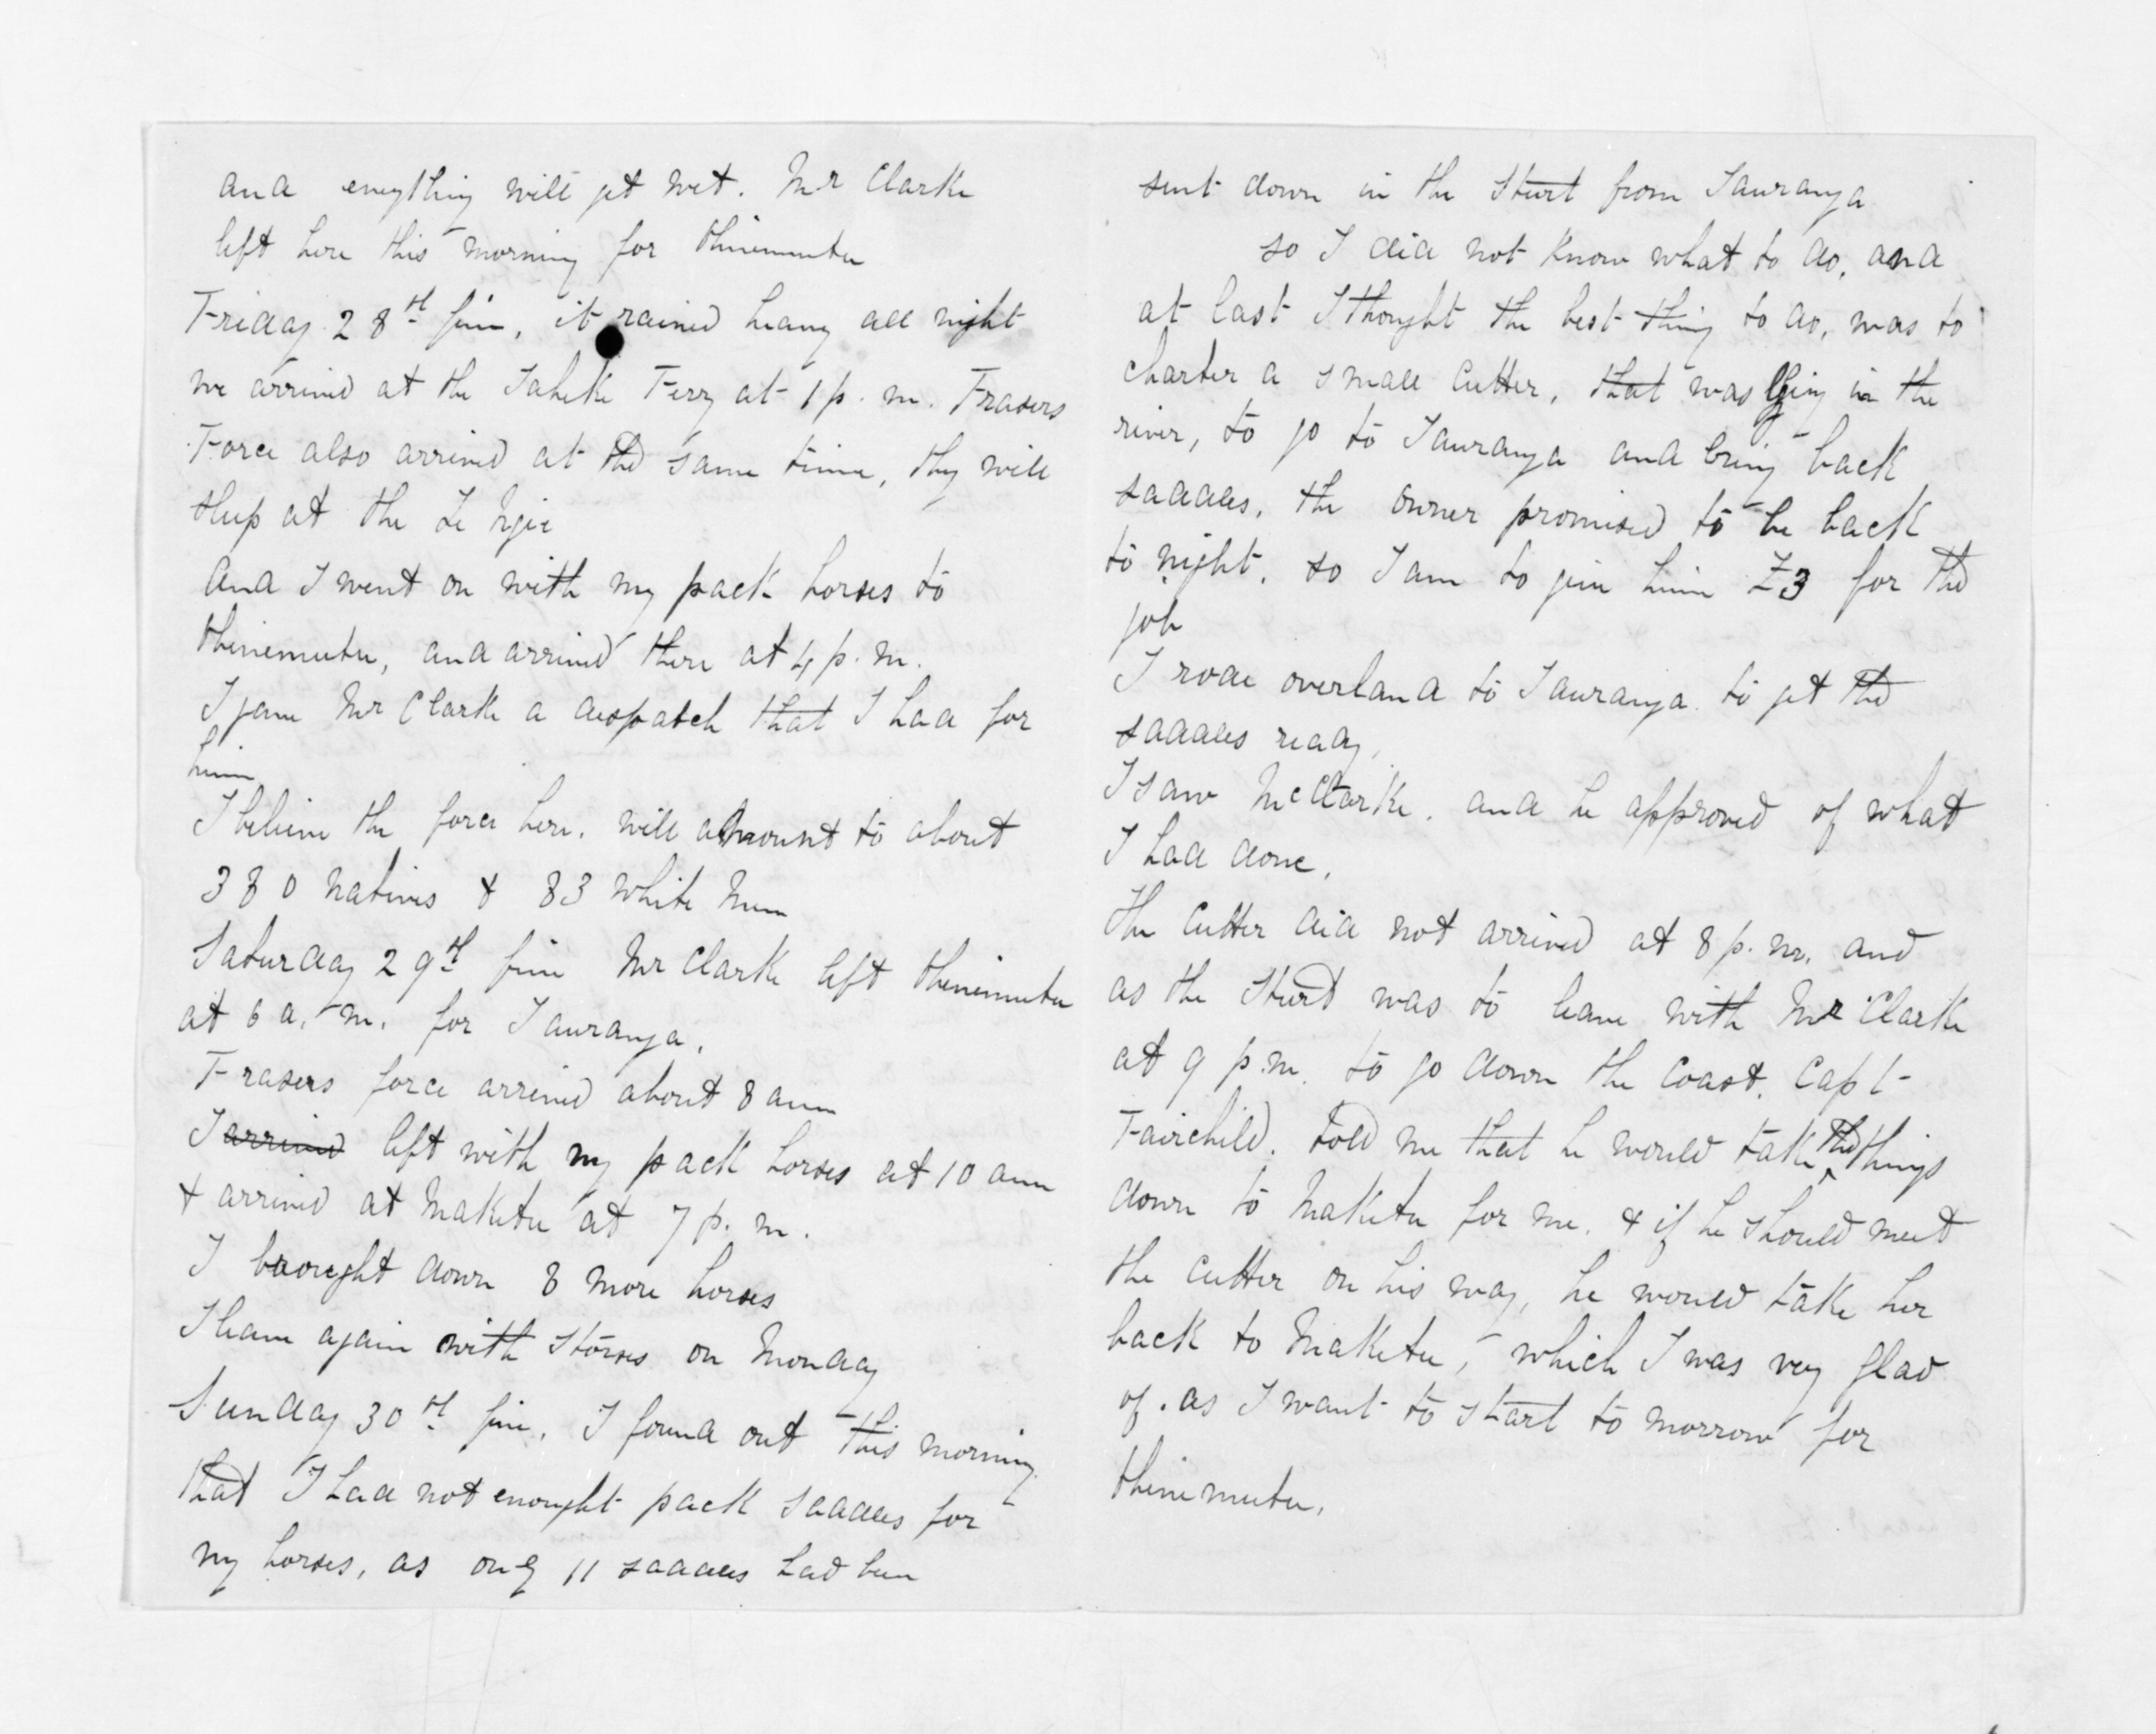 and everything will get wet. Mr Clarke
left here this morning for Ohinemutu
Friday 28th fine, it rained heavy all night
we arrived at the Taheke Ferry at 1 p.m. Frasers
Force also arrived at the same time, they will
sleep at the Te Ngae
and I went on with my pack horses to
Ohinemutu, and arrived there at 4 p.m.
I gave Mr Clarke a despatch that I had for
him
I believe the force here. will amount to about
380 natives & 83 white men
Saturday 29th fine Mr Clarke left Ohinemutu
at 6 a.m. for Tauranga.
Frasers force arrived about 8 am
I arrived left with my pack horses at 10 am
& arrived at Maketu at 7 p.m.
I brought down 8 more horses
I leave again with stores on Monday
Sunday 30th fine, I found out this morning
that I had not enought pack saddles for
my horses, as only 11 saddles had been
sent down in the Sturt from Tauranga
so I did not know what to do, and
at last I thought the best thing to do, was to
charter a small Cutter, that was lying in the
river, to go to Tauranga and bring back
saddles, the owner promised to be back
to night, so I am to give him £3 for the
job
I rode overland to Tauranga to get the
saddles ready,
I saw Mr Clarke. and he approved of what
I had done,
The Cutter did not arrived at 8 p.m. and
as the Sturt was to leave with Mr Clarke
at 9 p.m. to go down the Coast. Capt
Fairchild. told me that he would take the things
down to Maketu for me. & if he should meet
the cutter on his way, he would take her
back to Maketu, which I was very glad
of. as I want to start to morrow for
Ohinemutu.